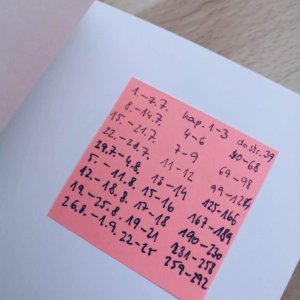 1.–7.7. kap. 1–3 do str. 39
8.–14.7. 4–6 40–68
15.–21.7. 7–9 69–98
22.–28.7. 11–12
29.7–4.8. 13–14 125–166
5.–11.8. 15–16 167–189
12.–18.8. 17–18 190–230
19.–25.8. 19–21 231–258
26.8.–1.9. 22–25 259–292